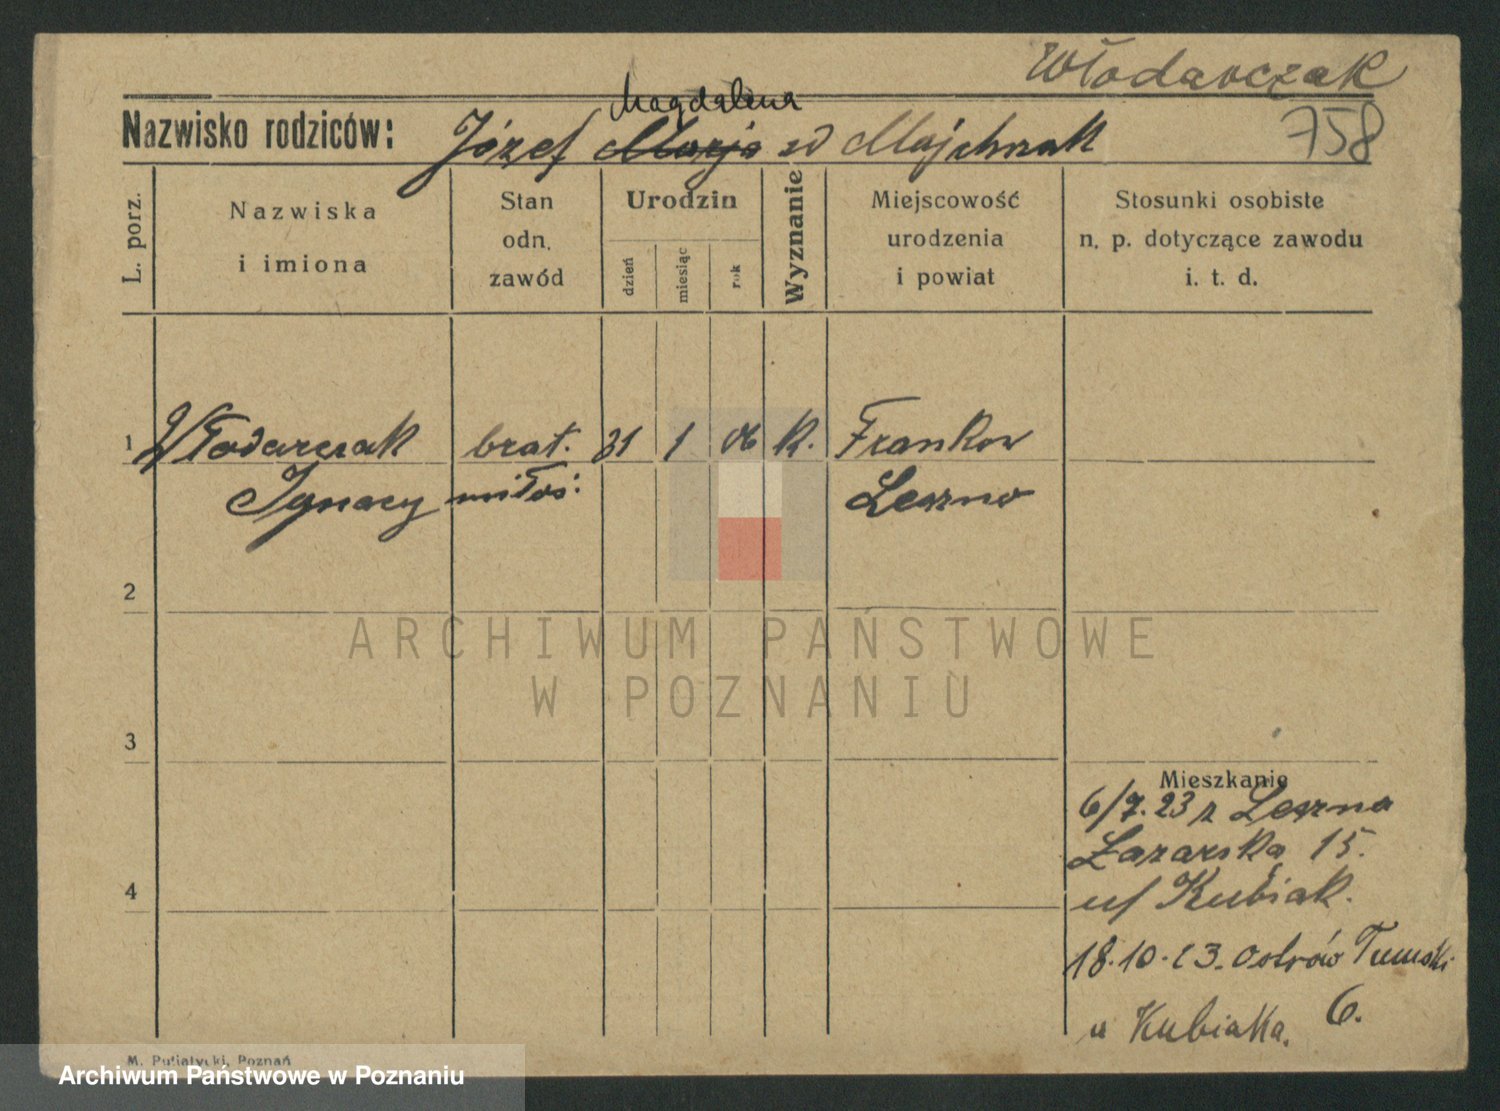 Włodarczak
758
Magdalena
Nazwisko rodziców: Józef Marja zd Majchrzak
L. porz.
Nazwiska
i imiona
Stan
odn.
zawód
Urodzin
dzień
miesiąc
rok
Wyznanie
Miejscowość
urodzenia
i powiat
Stosunki osobiste
n. p. dotyczące zawodu
i. t. d.
1 Włodarczak brat. 31 1 06 K. Frankow
Ignacy miłoś. Leszno
2
ARCHIWUM PAŃSTWOWE
W POZNANIU
3
Mieszkanie
6/7.23 z Leszna
Łazarska 15.
u/ Kubiak.
4
18.10.23. Ostrów Tumski
6.
u Kubiaka.
M. Putiatycki, Poznań
Archiwum Państwowe w Poznaniu